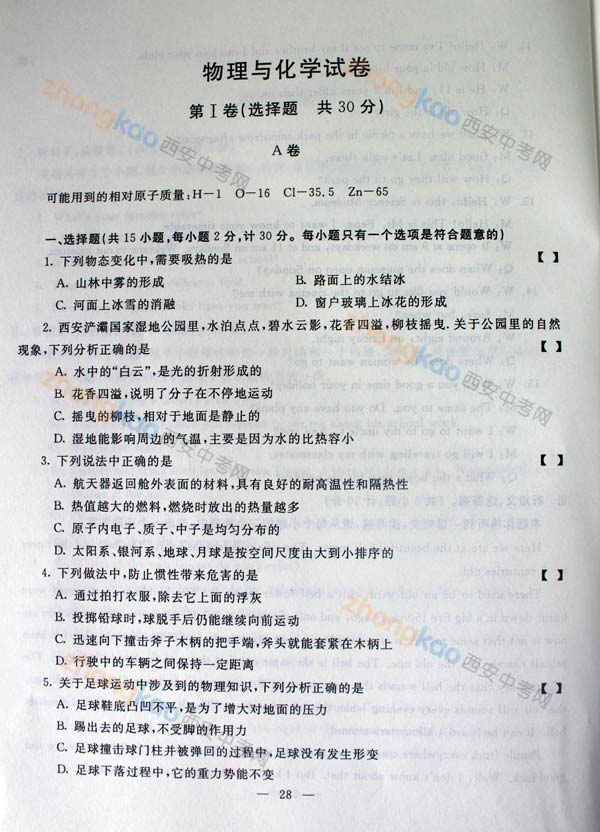 物理与化学试卷
第Ⅰ卷(选择题　共30分)
A卷
可能用到的相对原子质量:H—1　O—16　Cl—35.5　Zn—65
一、选择题(共15小题,每小题2分,计30分。每小题只有一个选项是符合题意的)
1. 下列物态变化中,需要吸热的是 【 】
A. 山林中雾的形成　B. 路面上的水结冰
C. 河面上冰雪的消融　D. 窗户玻璃上冰花的形成
2. 西安浐灞国家湿地公园里,水泊点点,碧水云影,花香四溢,柳枝摇曳.关于公园里的自然
现象,下列分析正确的是 【 】
A. 水中的“白云”,是光的折射形成的
B. 花香四溢,说明了分子在不停地运动
C. 摇曳的柳枝,相对于地面是静止的
D. 湿地能影响周边的气温,主要是因为水的比热容小
3. 下列说法中正确的是 【 】
A. 航天器返回舱外表面的材料,具有良好的耐高温性和隔热性
B. 热值越大的燃料,燃烧时放出的热量越多
C. 原子内电子、质子、中子是均匀分布的
D. 太阳系、银河系、地球、月球是按空间尺度由大到小排序的
4. 下列做法中,防止惯性带来危害的是 【 】
A. 通过拍打衣服,除去它上面的浮灰
B. 投掷铅球时,球脱手后仍能继续向前运动
C. 迅速向下撞击斧子木柄的把手端,斧头就能套紧在木柄上
D. 行驶中的车辆之间保持一定距离
5. 关于足球运动中涉及到的物理知识,下列分析正确的是 【 】
A. 足球鞋底凸凹不平,是为了增大对地面的压力
B. 踢出去的足球,不受脚的作用力
C. 足球撞击球门柱并被弹回的过程中,足球没有发生形变
D. 足球下落过程中,它的重力势能不变
— 28 —
zhongkao西安中考网
zhongkao西安中考网
zhongkao西安中考网
zhongkao西安中考网
zhongkao西安中考网
zhongkao西安中考网